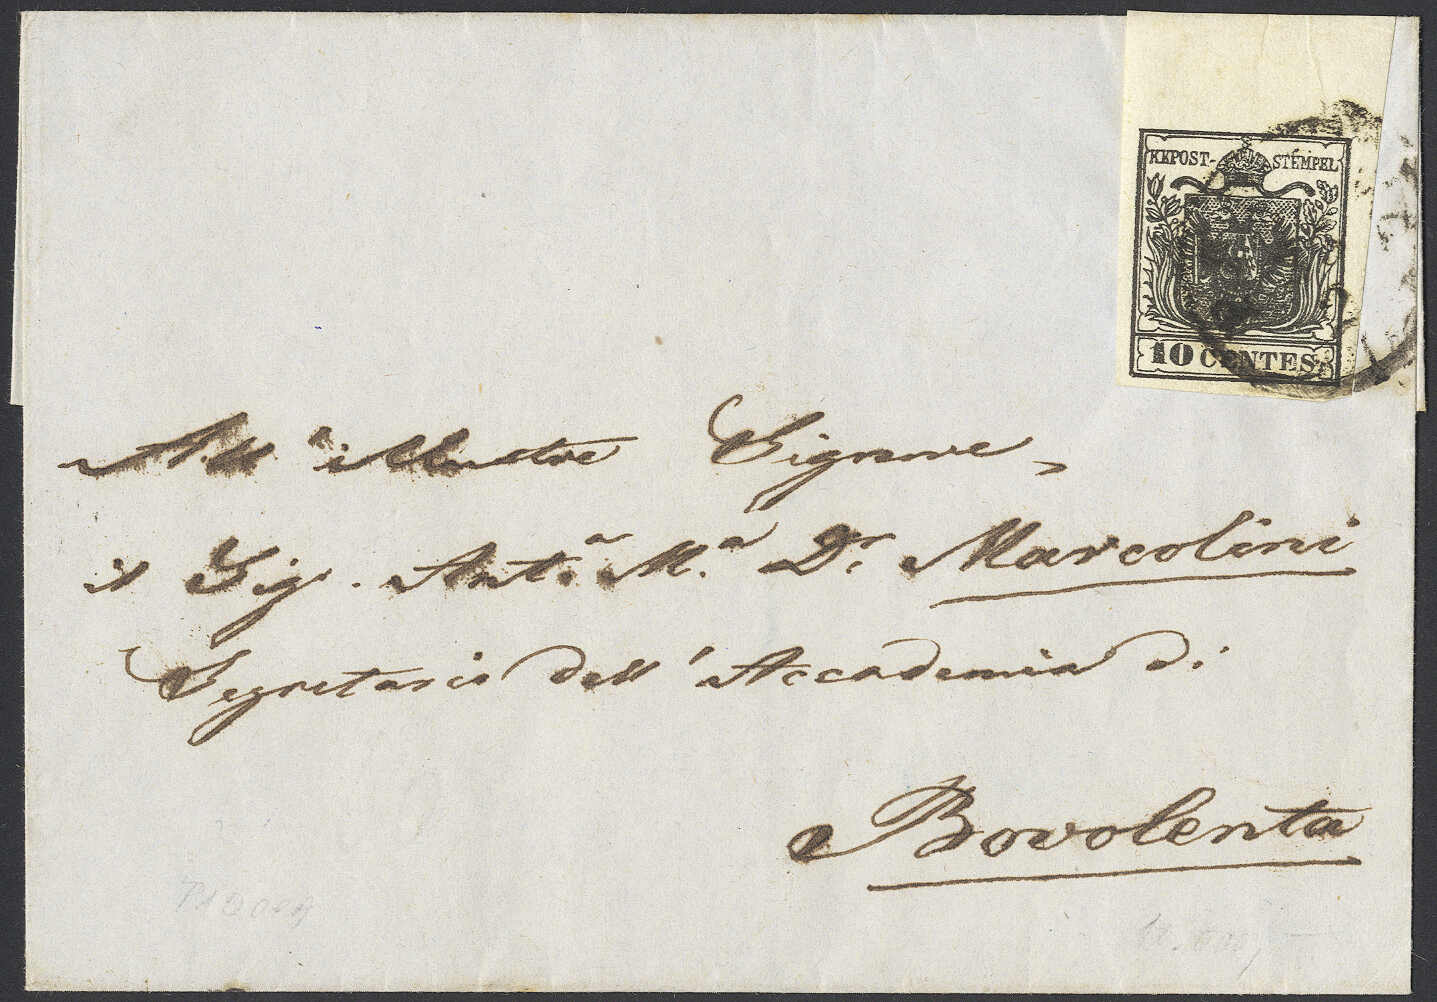 KKPOST-STEMPEL
10 CENTES.
All' illustre Signore,
il Sig. Ant.ª M.ª Dr. Marcolini
Segretario dell' Accademia di
Bovolenta